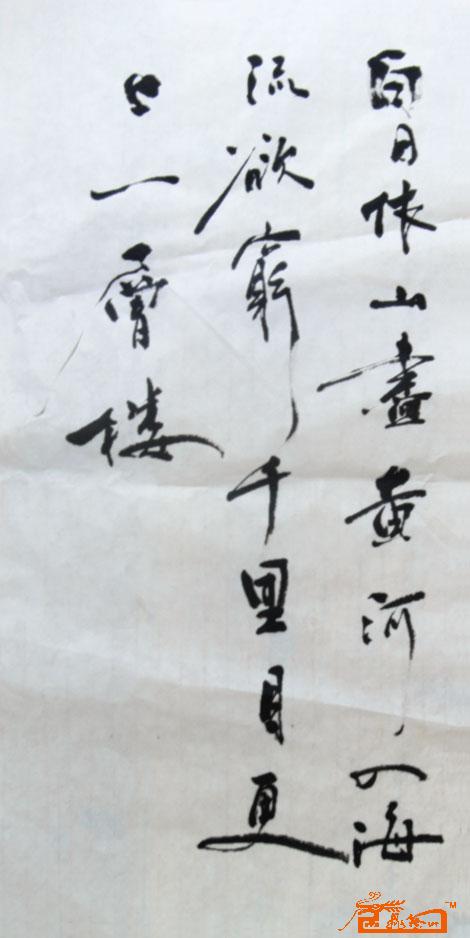 白日依山盡黄河入海
流欲窮千里目更
上一層楼